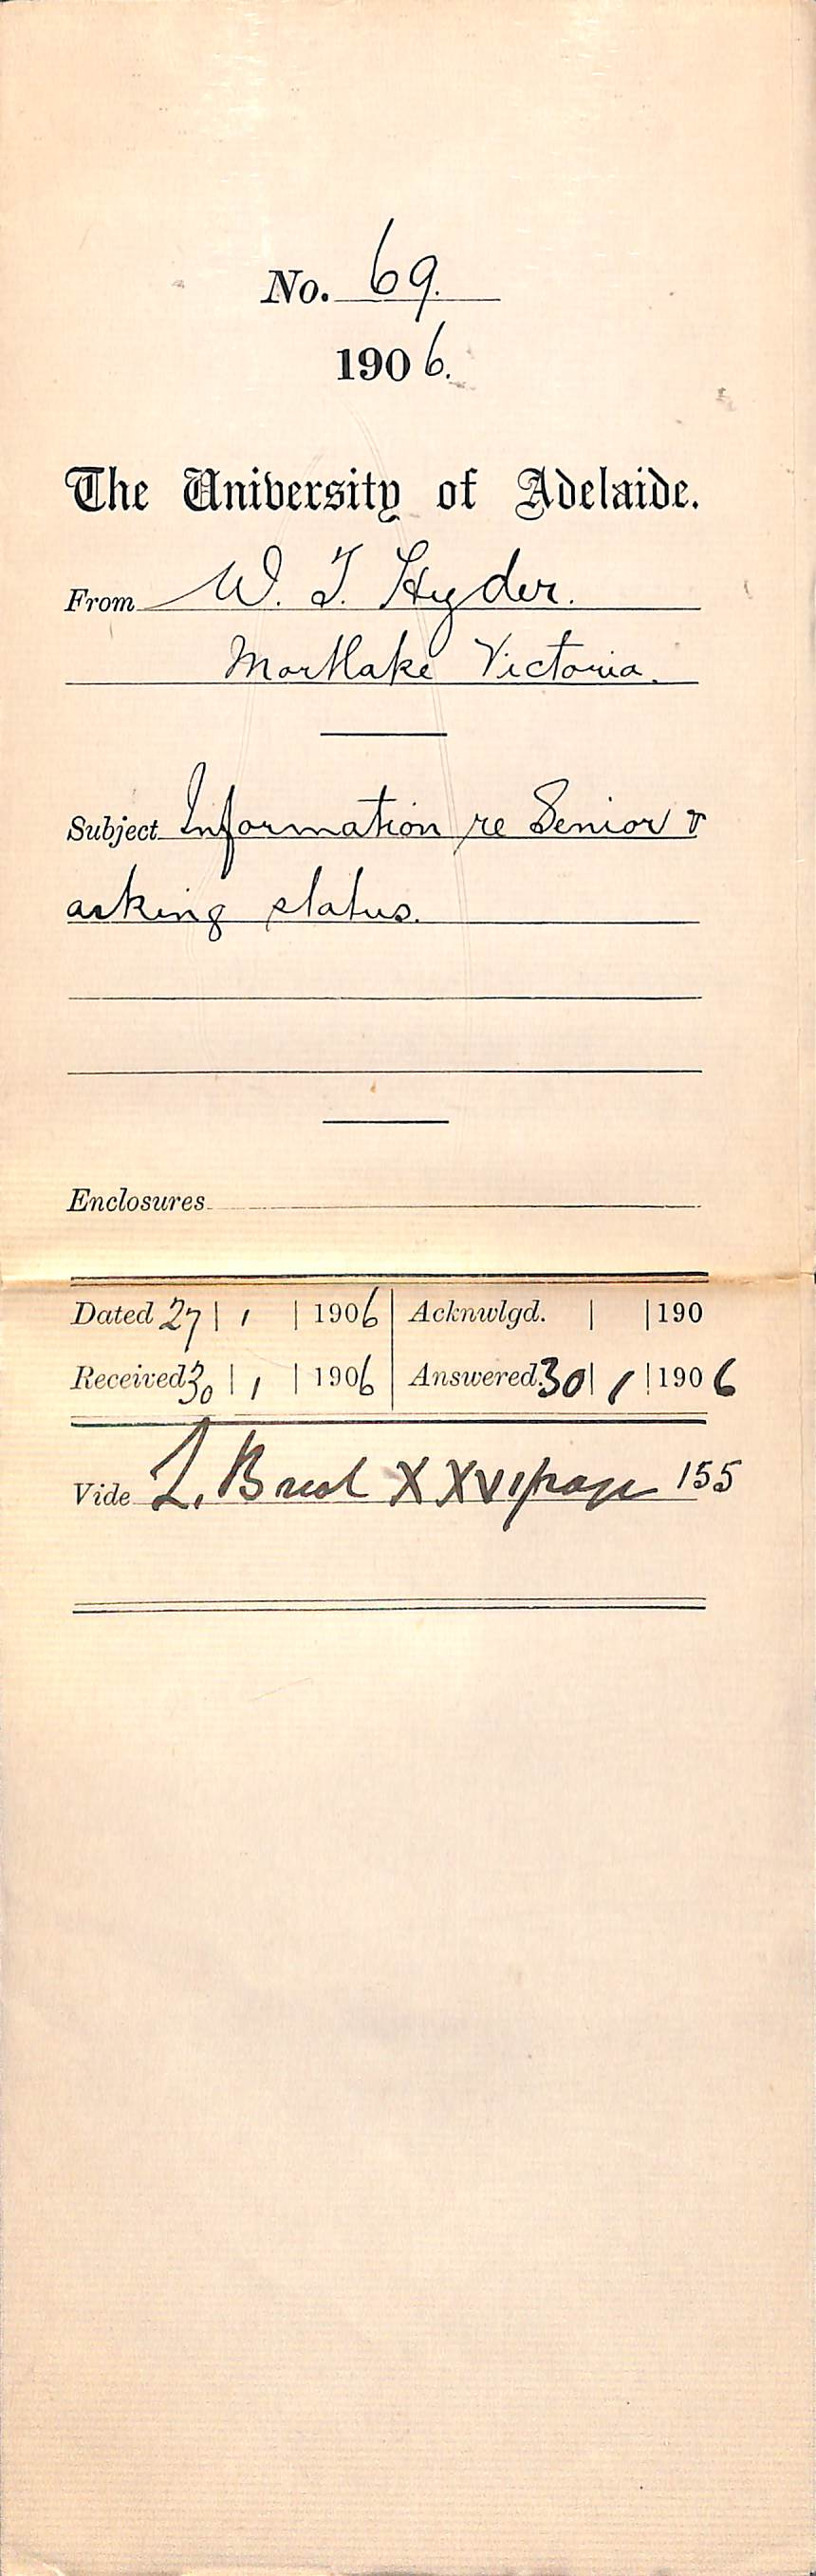 No. 69.
1906.
The University of Adelaide.
From W. T. Hyder.
Mortlake Victoria.
Subject Information re Senior &
asking status.
Enclosures
Dated 27 | 1 | 1906 | Acknwlgd. | | 190
Received 30 | 1 | 1906 | Answered. 30 | 1 | 1906
Vide L. Book XXVI page 155